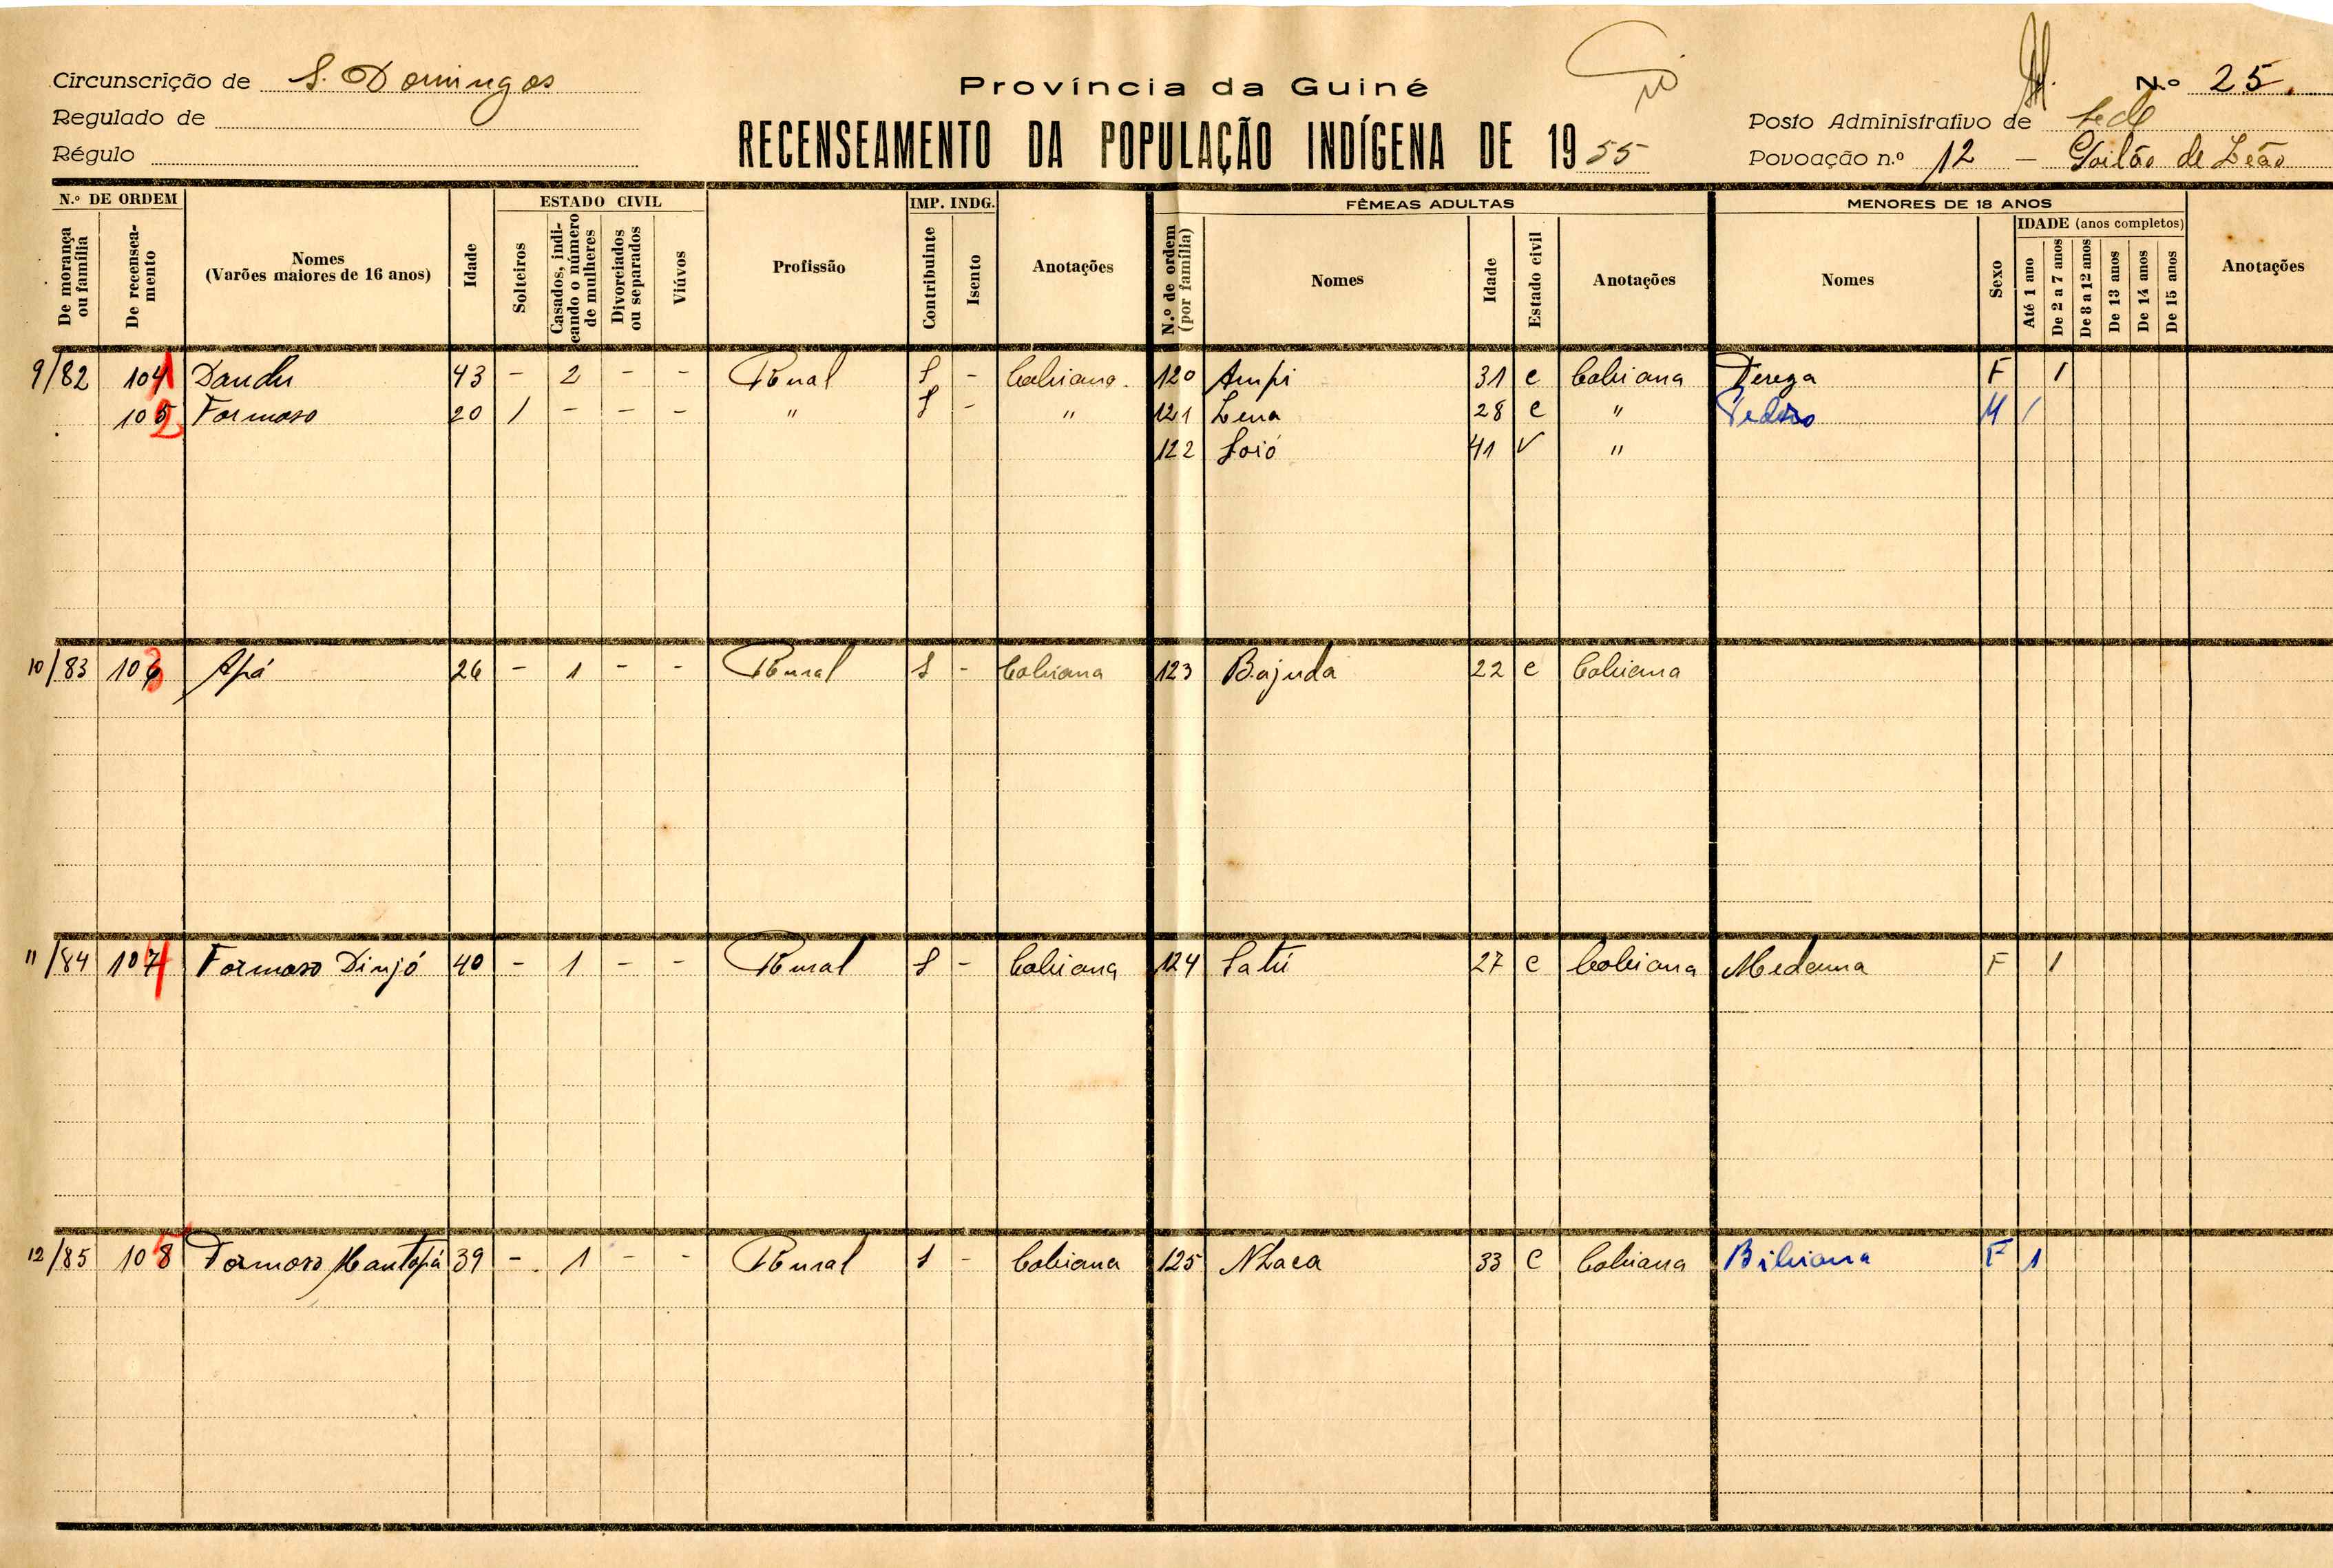 Circunscrição de S. Domingos
Regulado de
Régulo
Província da Guiné
RECENSEAMENTO DA POPULAÇÃO INDÍGENA DE 1955
N.º 25.
Posto Administrativo de Sede
Povoação n.º 12 — Poilão de Leão
N.º DE ORDEM
De morança ou família
De recenseamento
Nomes
(Varões maiores de 16 anos)
Idade
ESTADO CIVIL
Solteiros
Casados, indicando o número de mulheres
Divorciados ou separados
Viúvos
Profissão
IMP. INDG.
Contribuinte
Isento
Anotações
FÊMEAS ADULTAS
N.º de ordem (por família)
Nomes
Idade
Estado civil
Anotações
MENORES DE 18 ANOS
Nomes
Sexo
IDADE (anos completos)
Até 1 ano
De 2 a 7 anos
De 8 a 12 anos
De 13 anos
De 14 anos
De 15 anos
Anotações
9/82 104 1 Dandu 43 - 2 - - Rural S - Cobiana. 120 Ampi 31 c Cobiana Tereza F 1
105 2 Formoso 20 1 - - - " S - " 121 Lena 28 c " Pedro M 1
122 Soió 41 V "
10/83 106 3 Apá 26 - 1 - - Rural S - Cobiana 123 Bajuda 22 c Cobiana
11/84 107 4 Formoso Dinjó 40 - 1 - - Rural S - Cobiana 124 Satú 27 c Cobiana Medauna F 1
12/85 108 5 Formoso Mantopá 39 - 1 - - Rural S - Cobiana 125 NLaca 33 c Cobiana Bibiana F 1